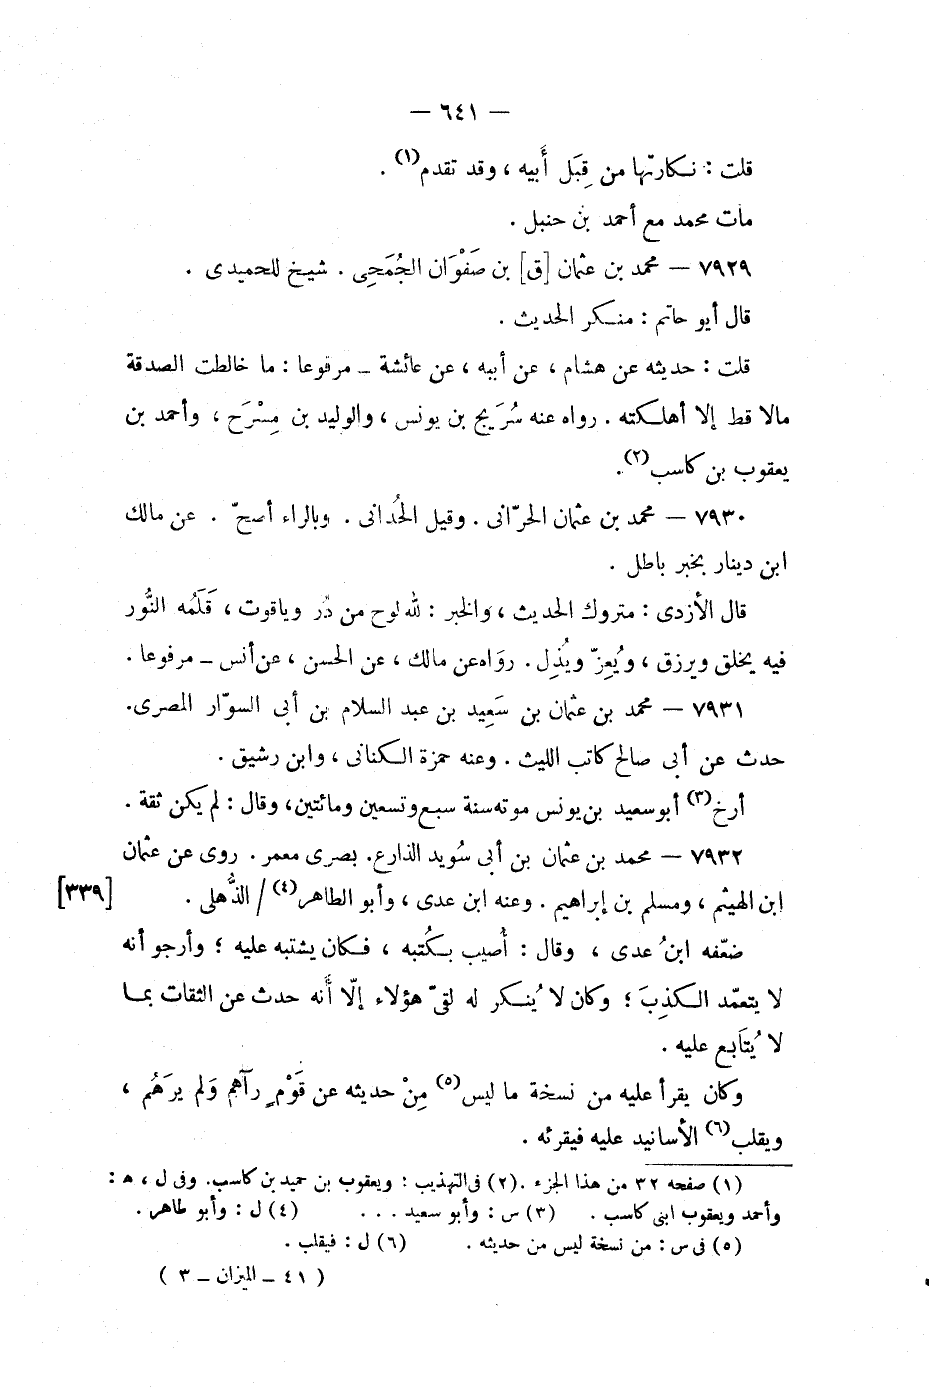 — ٦٤١ —
قلت : نكارتها من قِبَل أَبيه ، وقد تقدم(١) .
مات محمد مع أحمد بن حنبل .
٧٩٢٩ — محمد بن عثمان [ق] بن صَفْوَان الجُمَحِى . شيخ للحميدى .
قال أبو حاتم : منكر الحديث .
قلت : حديثه عن هشام ، عن أبيه ، عن عائشة ــ مرفوعا : ما خالطت الصدقة
مالا قط إلا أهلكته . رواه عنه سُرَيج بن يونس ، والوليد بن مِسْرَح ، وأحمد بن
يعقوب بن كاسب(٢).
٧٩٣٠ — محمد بن عثمان الحرّانى . وقيل الحُدانى . وبالراء أصحّ . عن مالك
ابن دينار بخبر باطل .
قال الأزدى : متروك الحديث ، والخبر : لله لوح من دُر وياقوت ، قَلَمُه النُّور
فيه يخلق ويرزق ، ويُعِزّ ويُذِل . رواه عن مالك ، عن الحسن ، عن أنس ــ مرفوعا .
٧٩٣١ — محمد بن عثمان بن سَعِيد بن عبد السلام بن أبى السوّار المصرى.
حدث عن أبى صالح كاتب الليث . وعنه حمزة الكنانى ، وابن رشيق .
أرخ(٣) أبو سعيد بن يونس موته سنة سبع وتسعين ومائتين، وقال : لم يكن ثقة .
٧٩٣٢ — محمد بن عثمان بن أبى سُويد الذارع. بصرى معمر . روى عن عثمان
ابن الهيثم ، ومسلم بن إبراهيم . وعنه ابن عدى ، وأبو الطاهر(٤) / الذُّهلى . [٣٣٩]
ضعّفه ابنُ عدى ، وقال : أُصيب بكُتبه ، فكان يشتبه عليه ؛ وأرجو أنه
لا يتعمّد الكذِبَ ؛ وكان لا يُنكر له لقىّ هؤلاء إلّا أَنه حدث عن الثقات بما
لا يُتَابع عليه .
وكان يقرأ عليه من نسخة ما ليس(٥) مِنْ حديثه عن قَوْمٍ رآهم وَلم يرَهُم ،
ويقلب(٦) الأسانيد عليه فيقرئه .
(١) صفحه ٣٢ من هذا الجزء .(٢) فى التهذيب : ويعقوب بن حميد بن كاسب. وفى ل ، ه :
وأحمد ويعقوب ابنى كاسب . (٣) س : وأبو سعيد . . . (٤) ل : وأبو طاهر .
(٥) فى س : من نسخة ليس من حديثه . (٦) ل : فيقلب .
( ٤١ ــ الميزان ــ ٣ )